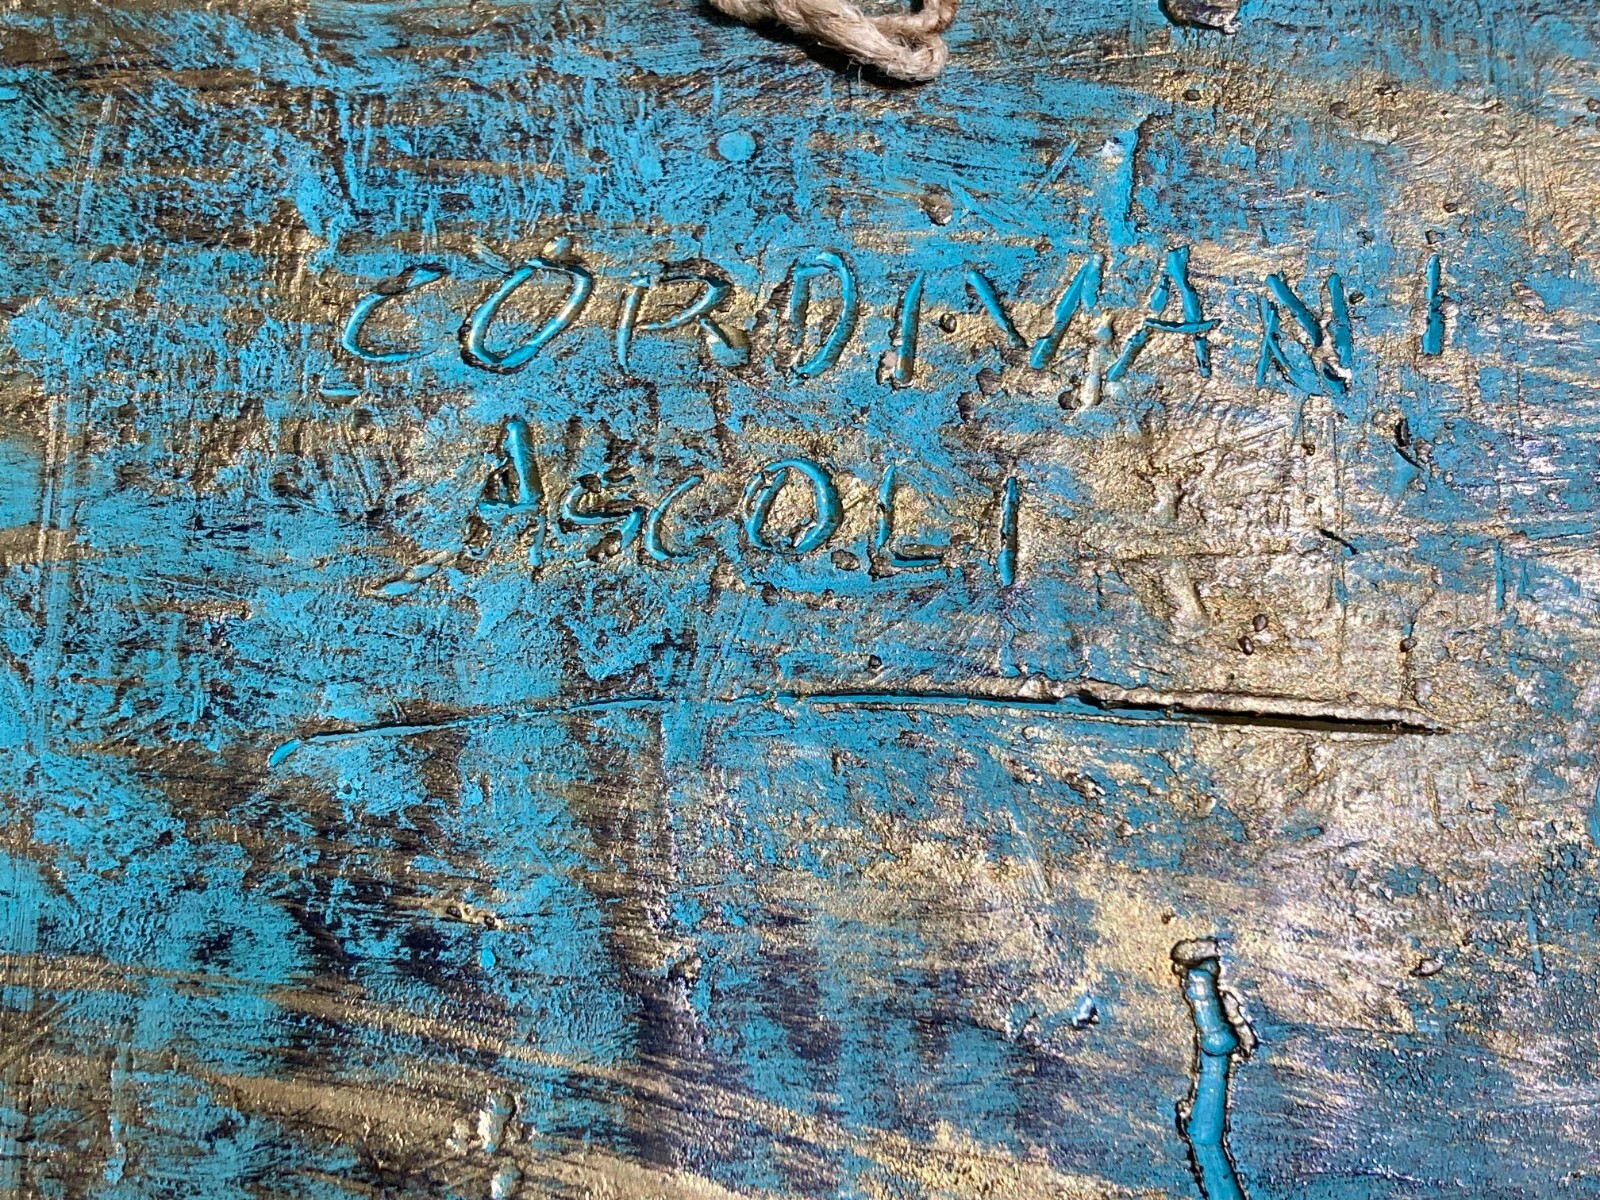 CORDIVANI
ASCOLI